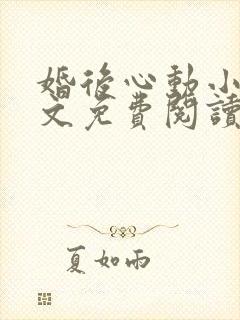 婚後心動小
文免費閱讀
夏如雨